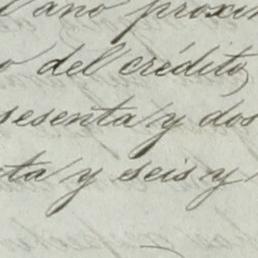 l ano proxim
o del crédito,
sesenta y dos
ta y seis y